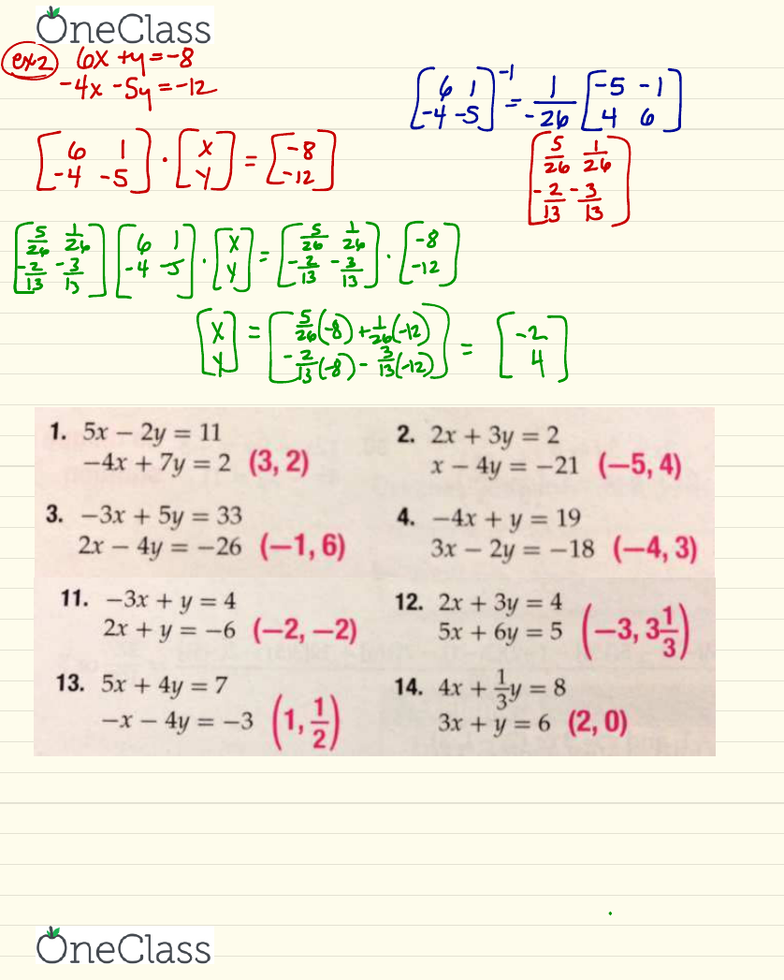 OneClass
ex2 6x + y = -8
-4x - 5y = -12
[6 1; -4 -5]⁻¹ = 1/-26 [-5 -1; 4 6]
[6 1; -4 -5] · [x; y] = [-8; -12]
[5/26 1/26; -2/13 -3/13]
[5/26 1/26; -2/13 -3/13] [6 1; -4 -5] · [x; y] = [5/26 1/26; -2/13 -3/13] · [-8; -12]
[x; y] = [5/26(-8) + 1/26(-12); -2/13(-8) - 3/13(-12)] = [-2; 4]
1. 5x − 2y = 11
−4x + 7y = 2 (3, 2)
2. 2x + 3y = 2
x − 4y = −21 (−5, 4)
3. −3x + 5y = 33
2x − 4y = −26 (−1, 6)
4. −4x + y = 19
3x − 2y = −18 (−4, 3)
11. −3x + y = 4
2x + y = −6 (−2, −2)
12. 2x + 3y = 4
5x + 6y = 5 (−3, 3 1/3)
13. 5x + 4y = 7
−x − 4y = −3 (1, 1/2)
14. 4x + 1/3y = 8
3x + y = 6 (2, 0)
OneClass